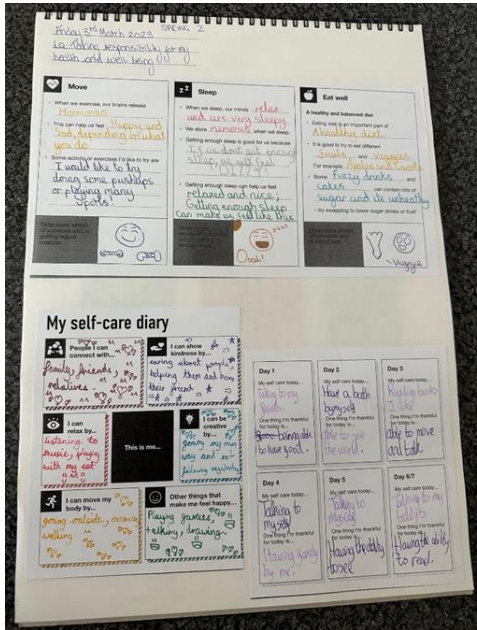 Friday 3rd March 2023 SPRING 2
LQ: taking responsibility for my
health and well being
Move
• When we exercise, our brains release
Hormones
• This can help us feel Happy and
Sad, depending on what
you do
• Some activity or exercises I'd like to try are
I would like to try
doing some pushups
or playing many
sports!
Sleep
• When we sleep, our minds relax
and are very sleepy
• We store memories when we sleep.
• Getting enough sleep is good for us because
If we dont get enough
sleep, we will feel
"DIZZY"!
• Getting enough sleep can help us feel
relaxed and nice;
Getting enough sleep
can make us feel like this
zzzz
Oooh!
Eat well
A healthy and balanced diet
• Eating well is an important part of
A healthy diet
• It is good to try to eat different
fruits and veggies
For example, Apples and Carrots
• Some Fuzzy drinks and
cakes can contain lots of
Sugar and its unhealthy
- try swapping to lower sugar drinks or fruit!
Veggie
My self-care diary
People I can
connect with...
family, friends,
relatives.
I can show
kindness by...
caring about people,
helping them and
their friend
I can
relax by...
listening to
music, playing
with my cat
This is me...
I can be
creative
by...
doing my own
way and not
following
I can move my
body by...
going outside, exercise
walking.
Other things that
make me feel happy...
Playing games,
talking, drawing.
Day 1
My self care today...
Talking to my
family
One thing I'm thankful
for today is...
being able
to have food.
Day 2
My self care today...
Have a bath
by myself
One thing I'm thankful
for today is...
able to see
the world.
Day 3
My self care today...
Reading books
I like
One thing I'm thankful
for today is...
able to move
and talk
Day 4
My self care today...
Talking to
my self
One thing I'm thankful
for today is...
Having family
by me.
Day 5
My self care today...
Talking to
myself
One thing I'm thankful
for today is...
Having the ability
to see
Day 6/7
My self care today...
Talking to my
One thing I'm thankful
for today is...
Having the ability
to read.